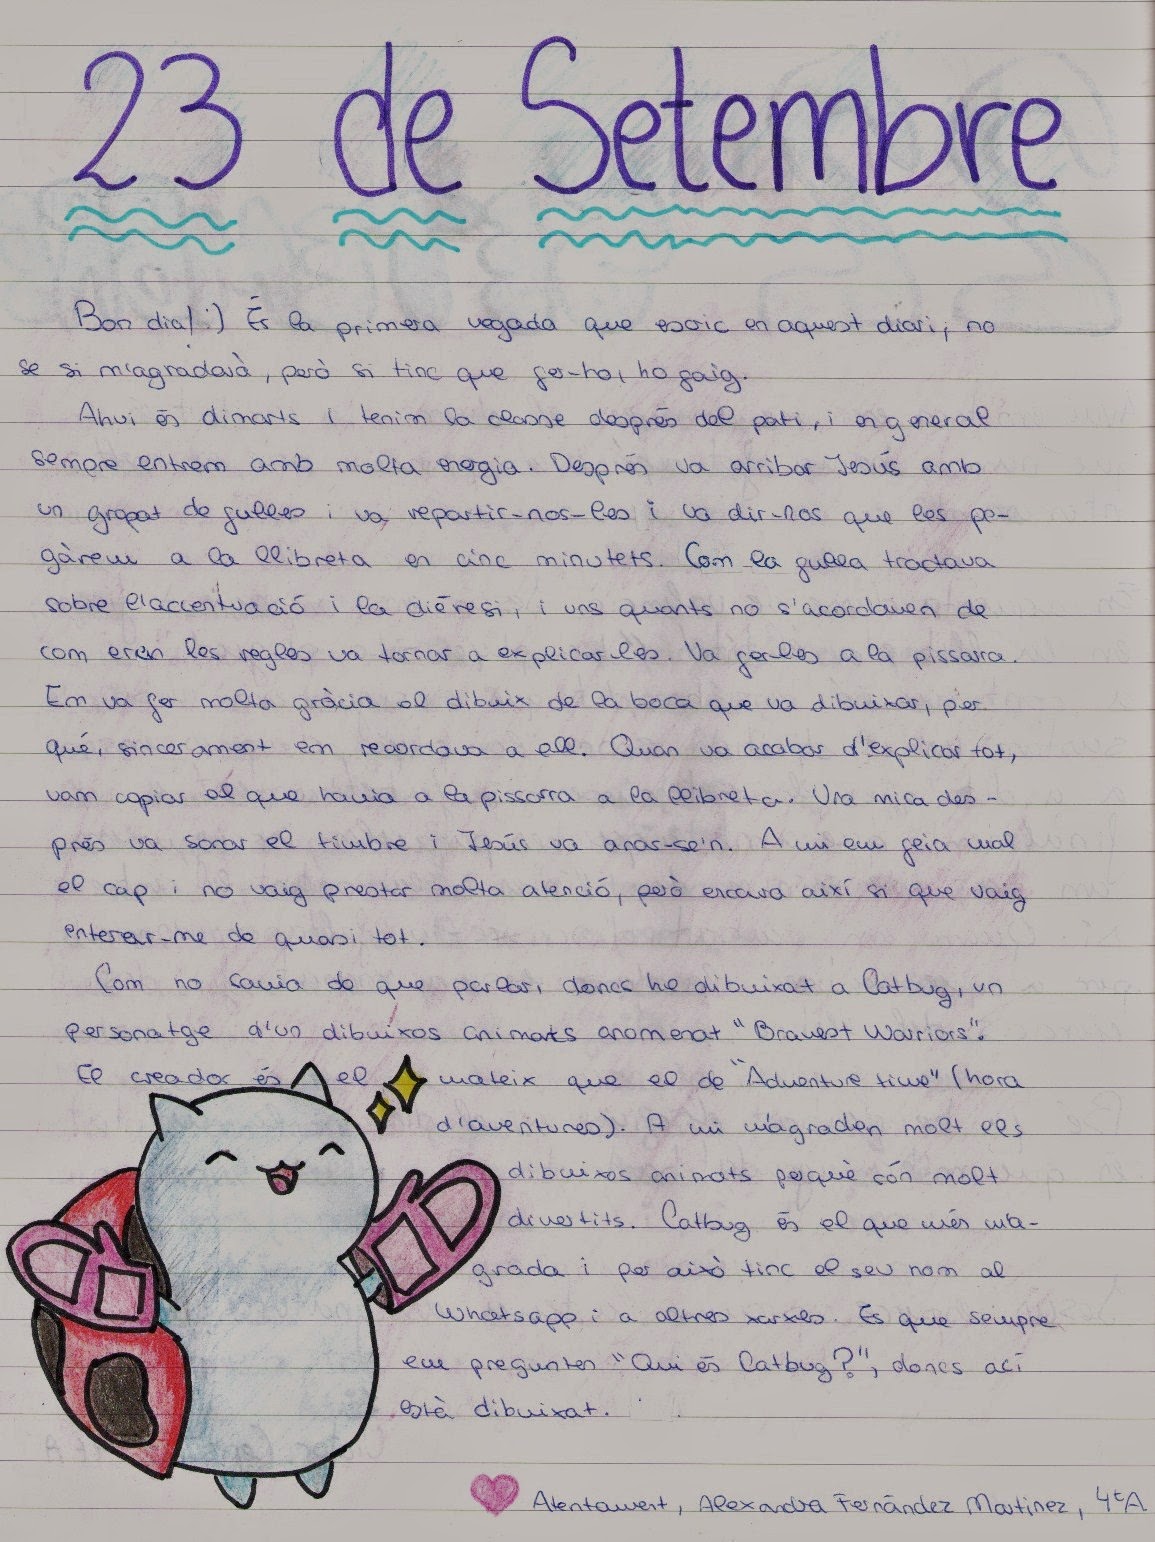 23 de Setembre
Bon dia! :) És la primera vegada que escric en aquest diari, no
se si m'agradarà, però si tinc que fer-ho, ho faig.
Ahui és dimarts i tenim la classe desprès del pati, i en general
sempre entrem amb molta energia. Desprès va arribar Jesús amb
un grapat de fulles i va repartir-nos-les i va dir-nos que les pe-
gàrem a la llibreta en cinc minutets. Com la fulla tractava
sobre l'accentuació i la dièresi, i uns quants no s'acordaven de
com eren les regles va tornar a explicar-les. Va fer-les a la pissarra.
Em va fer molta gràcia el dibuix de la boca que va dibuixar, per
què, sincerament em recordava a ell. Quan va acabar d'explicar tot,
vam copiar el que havia a la pissarra a la llibreta. Una mica des-
près va sonar el timbre i Jesús va anar-se'n. A mi em feia mal
el cap i no vaig prestar molta atenció, però encara així si que vaig
enterar-me de quasi tot.
Com no savia de que parlar, doncs he dibuixat a Catbug, un
personatge d'un dibuixos animats anomenat "Bravest Warriors".
El creador és el mateix que el de "Adventure time" (hora
d'aventures). A mi m'agraden molt els
dibuixos animats perquè són molt
divertits. Catbug és el que més m'a-
grada i per això tinc el seu nom al
Whatsapp i a altres xarxes. Es que sempre
em pregunten "Qui és Catbug?", doncs ací
està dibuixat.
Atentament, Alexandra Fernández Martinez, 4tA